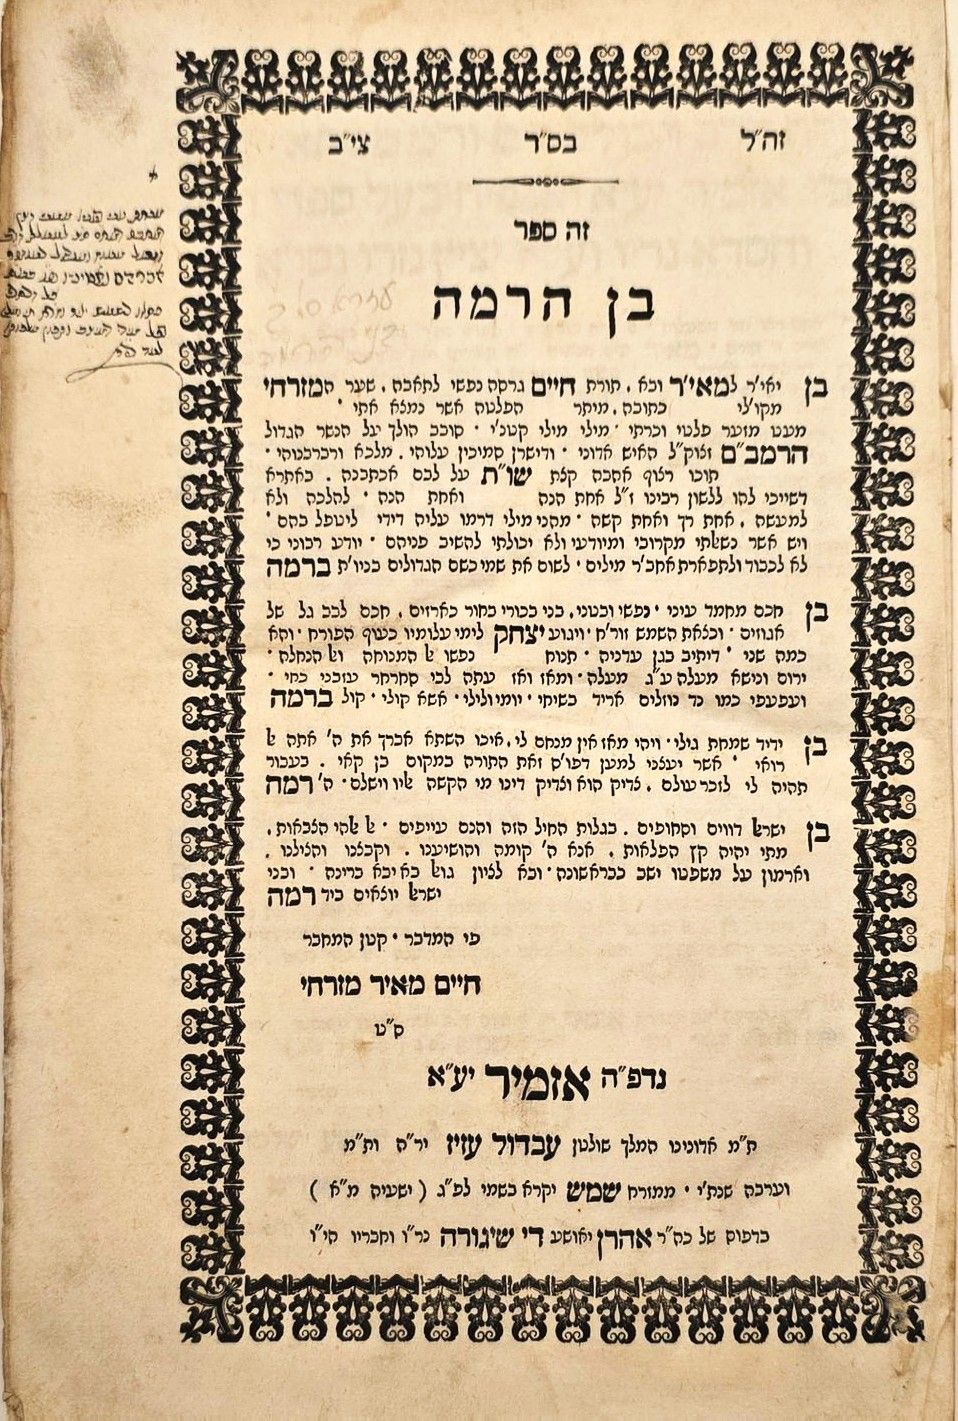 זה״ל בס״ד צי״ב
זה ספר
בן הרמה
בן יאי״ר למאי״ר ובא. תורת חיים גרסה נפשי לתאבה. שער המזרחי
מקו׳לי כתובה. מיתר הפלטה אשר נמצא אתי
מעט מזער פלטי וכרתי · מילי מילי קטנ׳י · סובב הולך על הנשר הגדול
הרמב״ם זצוק״ל האיש אדוני · ודישרן סמיכין עלוהי. מלכא ורברבנוהי ·
תוכו רצוף אהבה קצת שו״ת על לבם אכתבנה. באתרא
דשייכי להו ללשון רבינו ז״ל אחת הנה ואחת הנה · להלכה ולא
למעשה. אחת רך ואחת קשה · מהני מילי דרמו עליה דידי ליטפל בהם ·
ויש אשר נשאלתי מקרובי ומיודעי ולא יכולתי להשיב פניהם · יודע רבוני כי
לא לכבוד ולתפארת אחב׳ר מילים · לשום את שמי כשם הגדולים בניו״ת ברמה
בן חכם מחמד עיני · נפשי ובטני. בני בכורי בחור כארזים. חכם לבב גל של
אגוזים · ובצאת השמש זור״ח · ויגוע יצחק לימי עלומיו כעוף הפורח · והא
כמה שני · דיתיב בגן עדניה · תנוח נפשו אל המנוחה ואל הנחלה ·
ירום ונישא מעלה ע״ג מעלה · ומאז ואז עתה לבי סחרחר עזבני כחי ·
ועפעפי כמו נד נוזלים אריד בשיחי · יומי ולילי · אשא קולי · קול ברמה
בן ידיד שמחת גילי · ויהי מאז אין מנחם לי. איכו השתא אברך את ה׳ אתה אל
רואי · אשר יעצני למען דפו״ס זאת התורה במקום בן קאי. בעבור
תהיה לי לזכר עולם. צדיק הוא וצדיק דינו מי הקשה אליו וישלם · ה׳ רמה
בן ישראל דווים וסחופים. בגלות החיל הזה והנם עייפים · אל אלהי הצבאות.
מתי יהיה קץ הפלאות. אנא ה׳ קומה והושיענו. וקבצנו והצילנו.
וארמון על משפטו ישב כבראשונה · ובא לציון גואל בא יבא ברינה · ובני
ישראל יוצאים ביד רמה
פי המדבר · קטן המחבר
חיים מאיר מזרחי
ס״ט
נדפ״ה אזמיר יע״א
ת״מ אדונינו המלך שולטן עבדול עזיז יר״ה ות״מ
וערבה שנת׳י · ממזרח שמש יקרא בשמי לפ״ג ( ישעיה מ״א )
בדפוס של כה״ר אהרן יאושע די שיגורה נר״ו וחבריו הי״ו